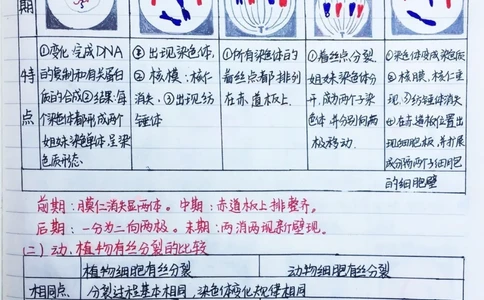 期
特点
①变化:完成DNA
的复制和有关蛋白
质的合成②结果:每
个染色体都形成两个
姐妹染色单体,呈染
色质形态.
①出现染色体,
②核膜、核仁
消失,③出现纺
锤体
①所有染色体的
着丝点都排列
在赤道板上.
①着丝点分裂.
姐妹染色体分
开,成为两个子染
色体,并分别向两
极移动.
①染色体变成染色质
②核膜、核仁重
现,③纺锤体消失
④在赤道板位置出
现细胞板,并扩展
成分隔两个子细胞
的细胞壁
前期:膜仁消失显两体。中期:赤道板上排整齐。
后期:一分为二向两极。末期:两消两现新壁现。
(二)动、植物有丝分裂的比较
植物细胞有丝分裂 动物细胞有丝分裂
相同点 分裂过程基本相同,染色体变化规律相同